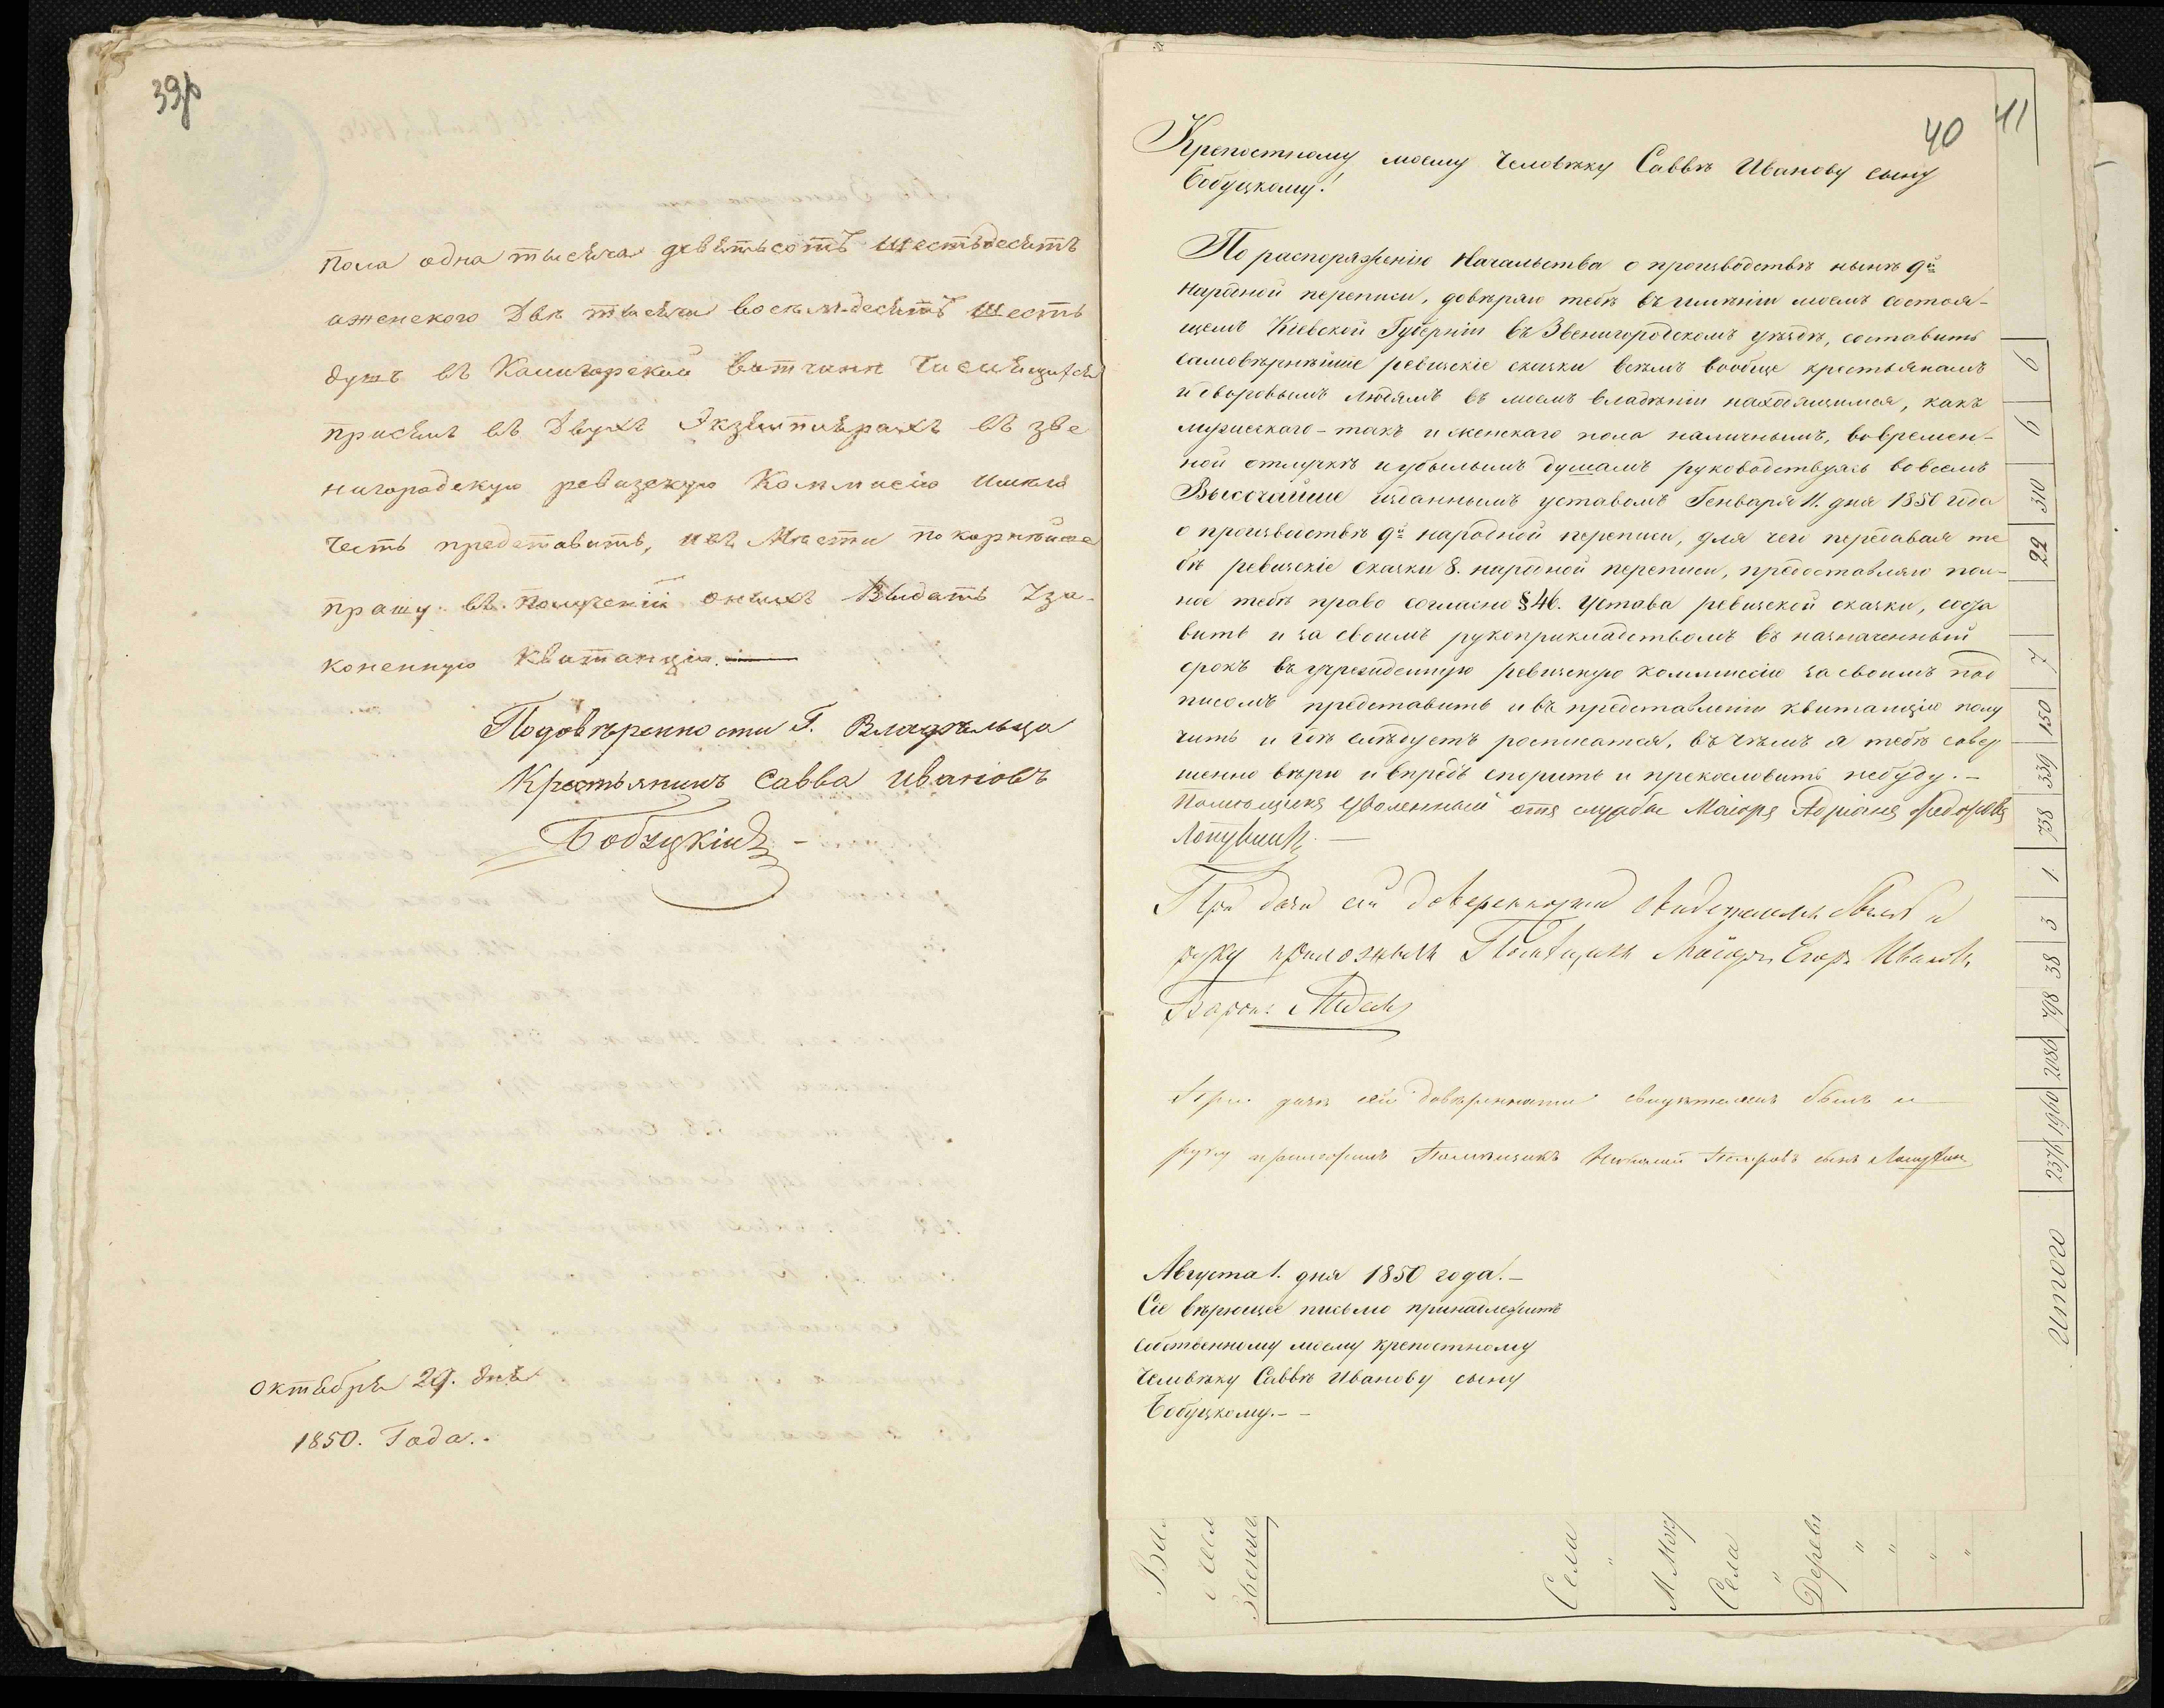 39р
пола одна тысеча девѣтьсотъ шестьдесетъ
аженского Двѣ тысечи восемьдесетъ шесть
душъ въ Калигорской вотчинѣ Числещихся
присемъ въ Двухъ Экземплѣрахъ въ зве
нигородскую ревизскую Коммисію имѣю
честь представить, ивъ Мѣсти покорнѣйше
прашу въ получении оныхъ Выдать Зза-
коненную Квитанцію.
Подовѣренности Г. Владѣльца
Крестьянинъ Савва Ивановъ
Бобуцкій
октебре 29. дне
1850. Года..
40
41
Крепостному моему Человѣку Саввѣ Иванову сыну
Бобуцкому!
По распоряженію Начальства о производствѣ нынѣ 9й
народной переписи, довѣряю тебѣ въ имѣніи моемъ состоя-
щемъ Кіевской Губерніи въ Звенигородскомъ уѣздѣ, составить
самовѣрнѣйшіе ревизскіе сказки всѣмъ вообще крестьянамъ
и дворовымъ людямъ въ моемъ владѣніи находящимся, какъ
мужескаго-такъ и женскаго пола наличнымъ, вовремен-
ной отлучкѣ иубылымъ душамъ руководствуясь вовсемъ
Высочайше изданнымъ уставомъ Генваря 11. дня 1850 года
о производствѣ 9й народной переписи, для чего передавая те
бѣ ревизскіе сказки 8. народной переписи, предоставляю пол-
ное тебѣ право согласно §46. Устава ревизской сказки, соста
вить и за своимъ рукоприкладствомъ въ назначенный
срокъ въ учрежденную ревизскую коммиссію за своимъ под
писомъ представить и въ представленіи квитанцію полу
чить и гдѣ слѣдуетъ росписатся, въ чѣмъ я тебѣ совер
шенно вѣрю и впредъ спорить и прекословить небуду.-
Помѣщикъ уволенный отъ службы Маіоръ Адріанъ Федоровъ
Лопухинъ
При дачи сей доверенности свидетелемъ былъ и
руку приложилъ Помѣщикъ Маіоръ Егоръ Ивановъ
Баронъ
При дачѣ сей довѣренности свидѣтелемъ былъ и
руку приложилъ Помѣщикъ Николай Петровъ сынъ Лопухинъ
Августа 1. дня 1850 года.-
Сіе вѣрющее письмо принадлежитъ
собственному моему крепостному
Человѣку Саввѣ Иванову сыну
Бобуцкому.--
Итого 2376 1960 2086 798 38 3 1 738 339 150 7 22 310 6 6
Звениг
Села
"
М Мок
Села
"
Дерев
"
"
"
"